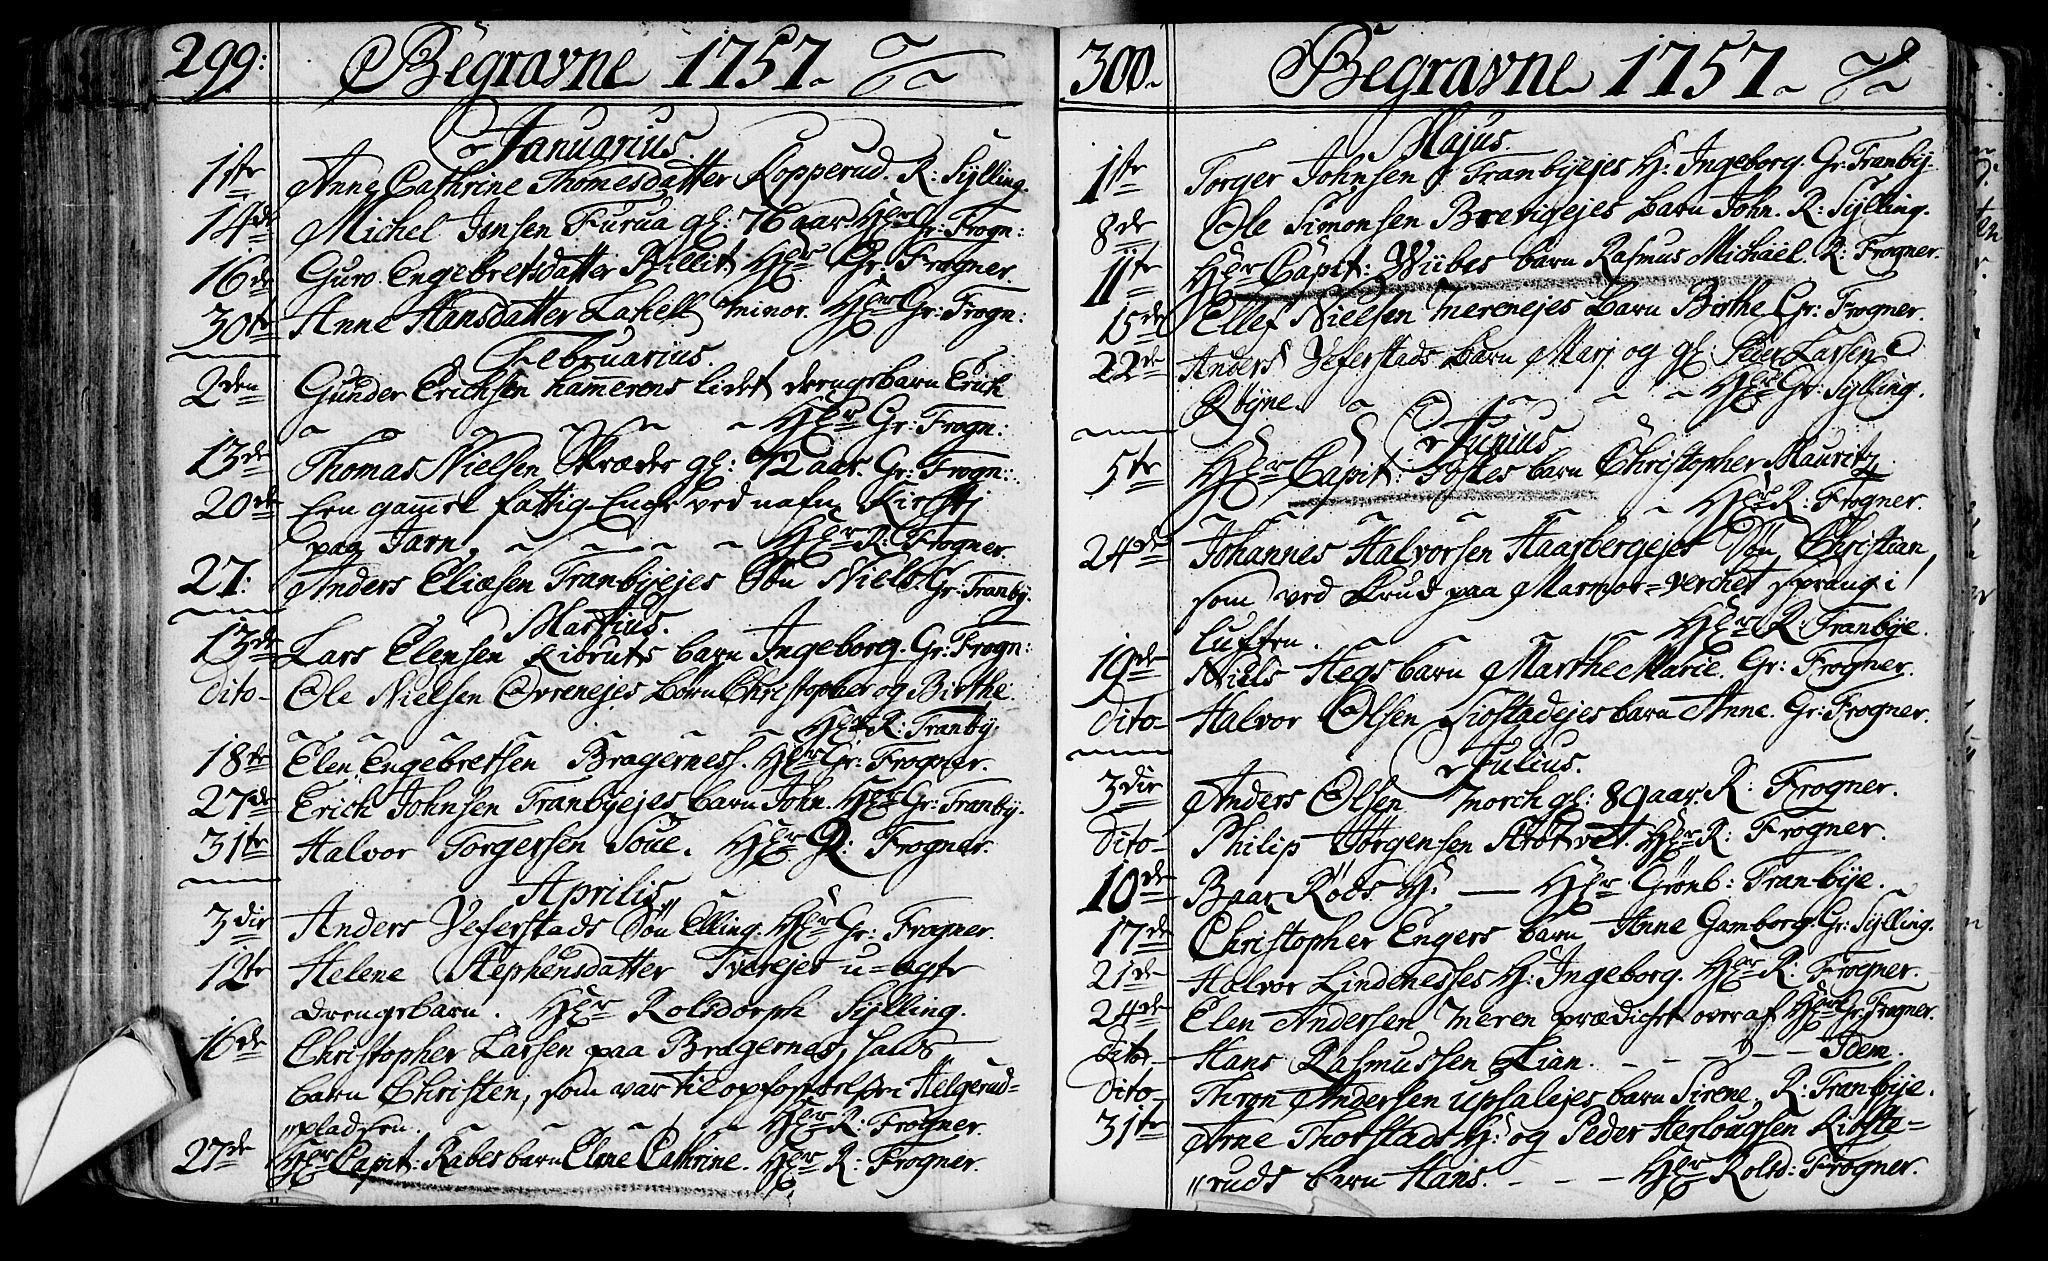 299: Begravne 1757.
Januarius.
1ste Anne Cathrine Thomesdatter Kopperud. R: Sylling.
14de Michel Jensen Furua gl: 76 aar. Her Gr: Frogn:
16de Guro Engebretsdatter Hr Gr: Frogner.
30te Anne Hansdatter Lahell minor. Hr Gr: Frogn:
Februarius.
2den Gunder Erichsen hamerens lidet drengebarn Erich
Hr Gr: Frogn:
13de Thomas Nielsen Skræder gl: 72 aar. Gr: Frogn:
20de Een gamel fattig Enche ved nafn
paa Jarn. Hr R: Frogner.
27: Anders Eliæsen Tranbyejes Søn Niels. Gr: Tranby.
Martius.
13de Lars Elensen barn Ingeborg. Gr: Frogn:
dito- Ole Nielsen Ovrenejes børn Christopher og Birthe
Hr R: Tranby.
18de Elen Engebretsen Bragerness. Hr Gr: Frogner.
27de Erich Johnsen Tranbyejes barn John. Hr Gr: Tranby.
31te Halvor Torgersen Soue. Hr R: Frogner.
Aprilis
3die Anders Yeferstads Søn Elling. Hr Gr: Frogner.
12te Helene Stephensdatter Tverejes u=ægte
drengebarn. Hr Rolsdorph Sylling.
16de Christopher Larsen paa Bragernes, hans
barn Christen, som var til opfostrelse i Helgerud=
pladsen. Hr R: Frogner.
27de Hr Capit: Rabes barn Elene Cathrine. Hr R: Frogner.
300. Begravne 1757.
Majus.
1ste Torger Johnsen Tranbyejes H: Ingeborg. Gr: Tranby.
8de Ole Simonsen Brevigejes barn John. R: Sylling.
11te Hr Capit: Wiibes barn Rasmus Michaël. R: Frogner.
15de Ellef Nielsen Merenejes barn Birthe Gr: Frogner.
22de Anders Yeferstads barn Marj og gl: Peder Larsen
Røyne. Hr Gr: Sylling.
Junius
5te Hr Capit: barn Christopher Mauritz
Hr R: Frogner.
24de Johannes Halvorsen Haasbergejes Søn Christian,
som ved Krud paa Marmor=verchet sprang i
luften. Hr R: Tranbye.
19de Niels Hegs barn Marthe Marie. Gr: Frogner.
dito- Halvor Olsen Siostadejes barn Anne. Gr: Frogner.
Julius.
3die Anders Olsen Morch gl: 89 aar. R: Frogner.
dito- Philip Jørgensen Støtvet. Hr R: Frogner.
10de Baar Røds H: — Hr Grönb: Tranbye.
17de Christopher Engers barn Anne Gamborg. Gr: Sylling.
21de Halvor Lindenesses H: Ingeborg. Hr R: Frogner.
24de Elen Andersen Meren prædichet over af Hr Gr: Frogner.
dito, Hans Rasmussen Lian. - - - - - Idem.
dito- Thron Andersen Upsalejes barn Sirene. R: Tranbye.
31te Arne Thorstads H: og Peder Herlougsen Kioste=
ruds barn Hans. - - - Hr Rolsd: Frogner.